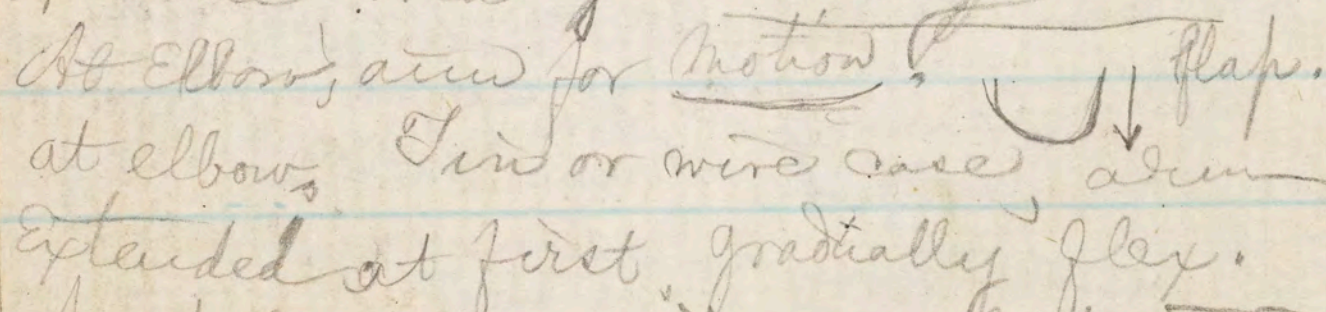 At Elbow, aim for motion. flap.
at elbow. Tin or wire case, arm
Extended at first, gradually flex.